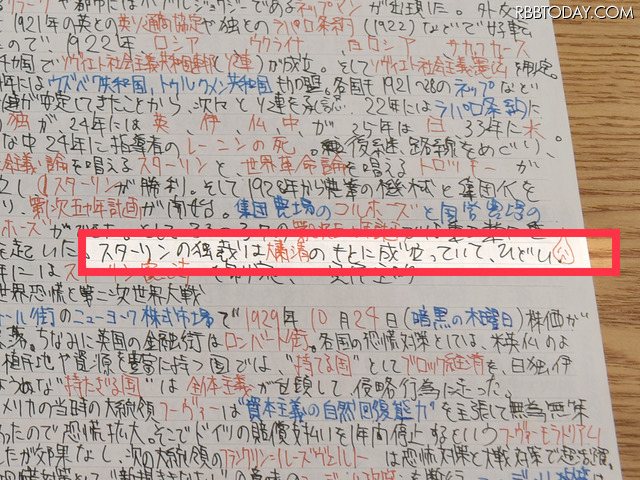 RBBTODAY.COM
1921年の英との英ソ通商協定や独とのラパロ条約(1922)などで好転
ので、1922年、ロシア ウクライナ 白ロシア ザカフカース
カ国でソヴィエト社会主義共和国連邦(ソ連)が成立。そしてソヴィエト社会主義憲法を制定。
年にはウズベク共和国、トゥルクメン共和国も加盟。各国も1921~28のネップなどで
が安定してきたことから、次々とソ連を承認。22年にはラパロ条約に
独が24年には英、伊、仏、中、が、25年は日、33年に米、
な中24年に指導者のレーニンの死。後継路線をめぐり、
社会主義論を唱えるスターリンと、世界革命論を唱えるトロツキーが
スターリンが勝利。そして1928年から農業の機械化と集団化を
第1次五ヵ年計画が開始。集団農場のコルホーズと国営農場の
ホーズが
を起こした。スターリンの独裁は粛清のもとに成り立っていて、ひどい
年には
世界恐慌と第二次世界大戦
ール街のニューヨーク株式市場で1929年10月24日(暗黒の木曜日)株価が
落。ちなみに英国の金融街はロンバート街。各国の恐慌対策としては、米英仏のよ
植民地や資源を豊富に持つ国では、"持てる国"としてブロック経済を、日独伊
"持たざる国"は全体主義が台頭して侵略行為に走った。
メリカの当時の大統領フーヴァーは"資本主義の自然回復能力"を主張して無為無策
ったので恐慌拡大。そこでドイツの賠償支払いを1年間停止するというフーヴァーモラトリアム
たが効果なし。次の大統領のフランクリン=ルーズヴェルトは恐慌対策と大戦対策で超活躍。